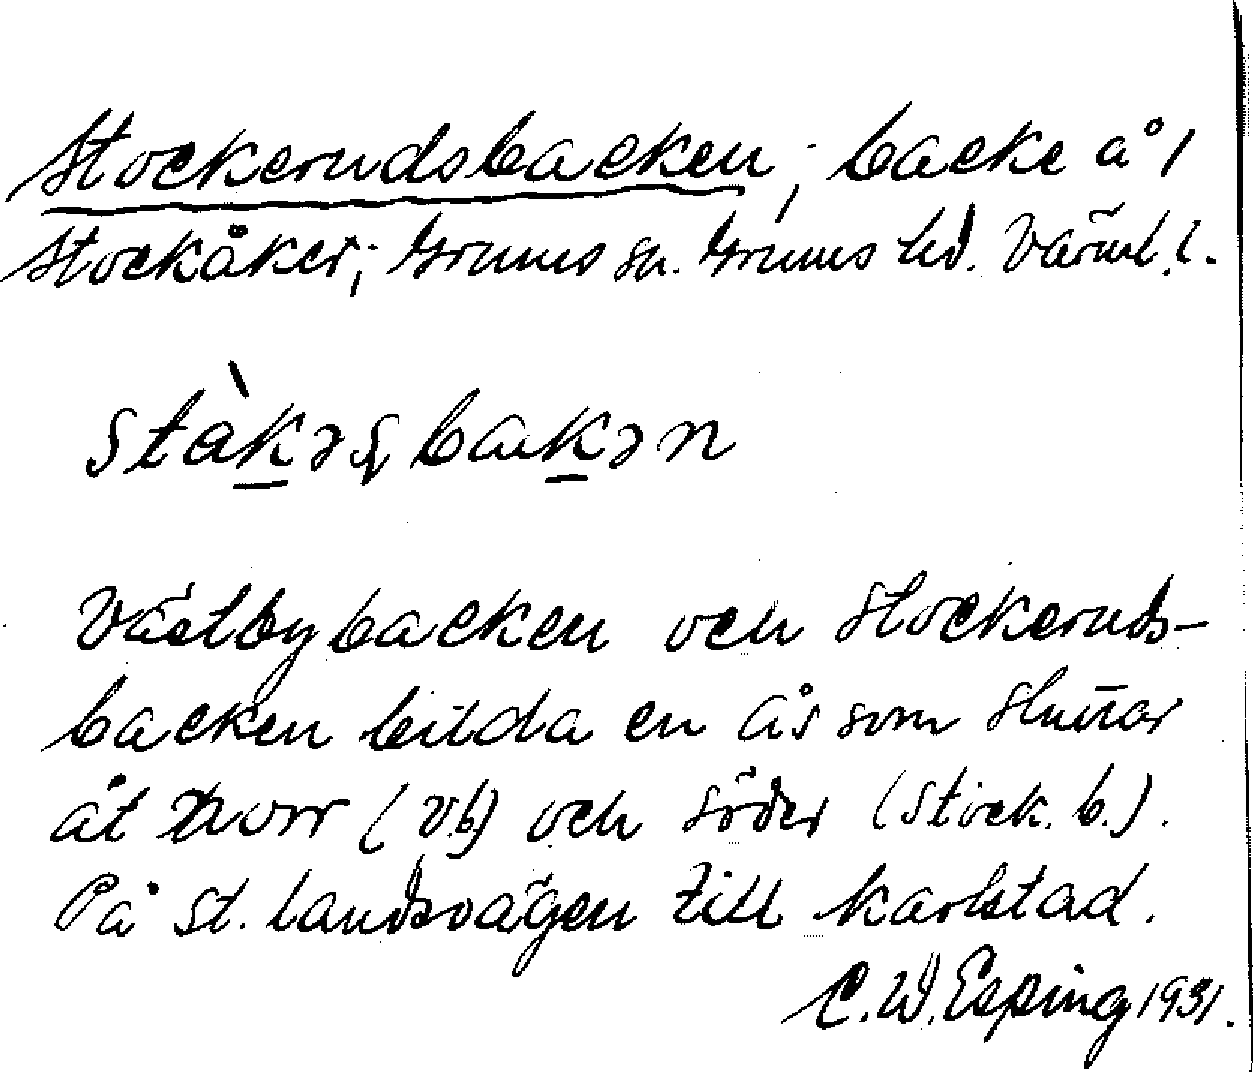 Stockerudsbacken, backe å 1
Stockåker; Grums sn. Grums hd. Värml. l.
stàkəʂbakən
Västbybacken och Stockeruds-
backen bilda en ås som sluttar
åt norr (V.b) och söder (Stock. b.).
På st. landsvägen till Karlstad.
C. W. Esping 1931.